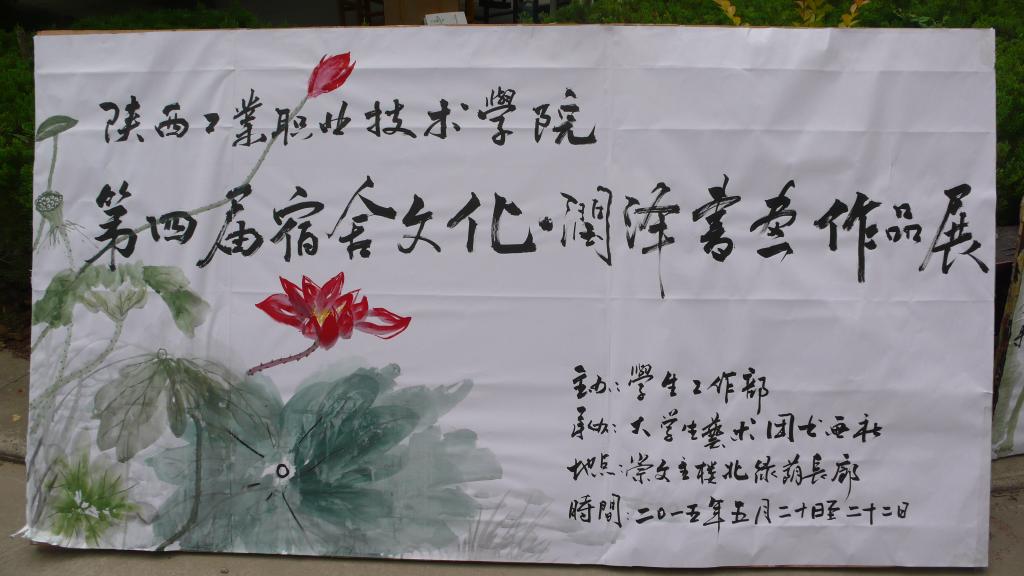 陕西工業职业技术學院
第四届宿舍文化·润泽書画作品展
主办:學生工作部
承办:大学生藝术团书画社
地点:崇文主楼北绿荫長廊
時間:二〇一五年五月二十日至二十二日